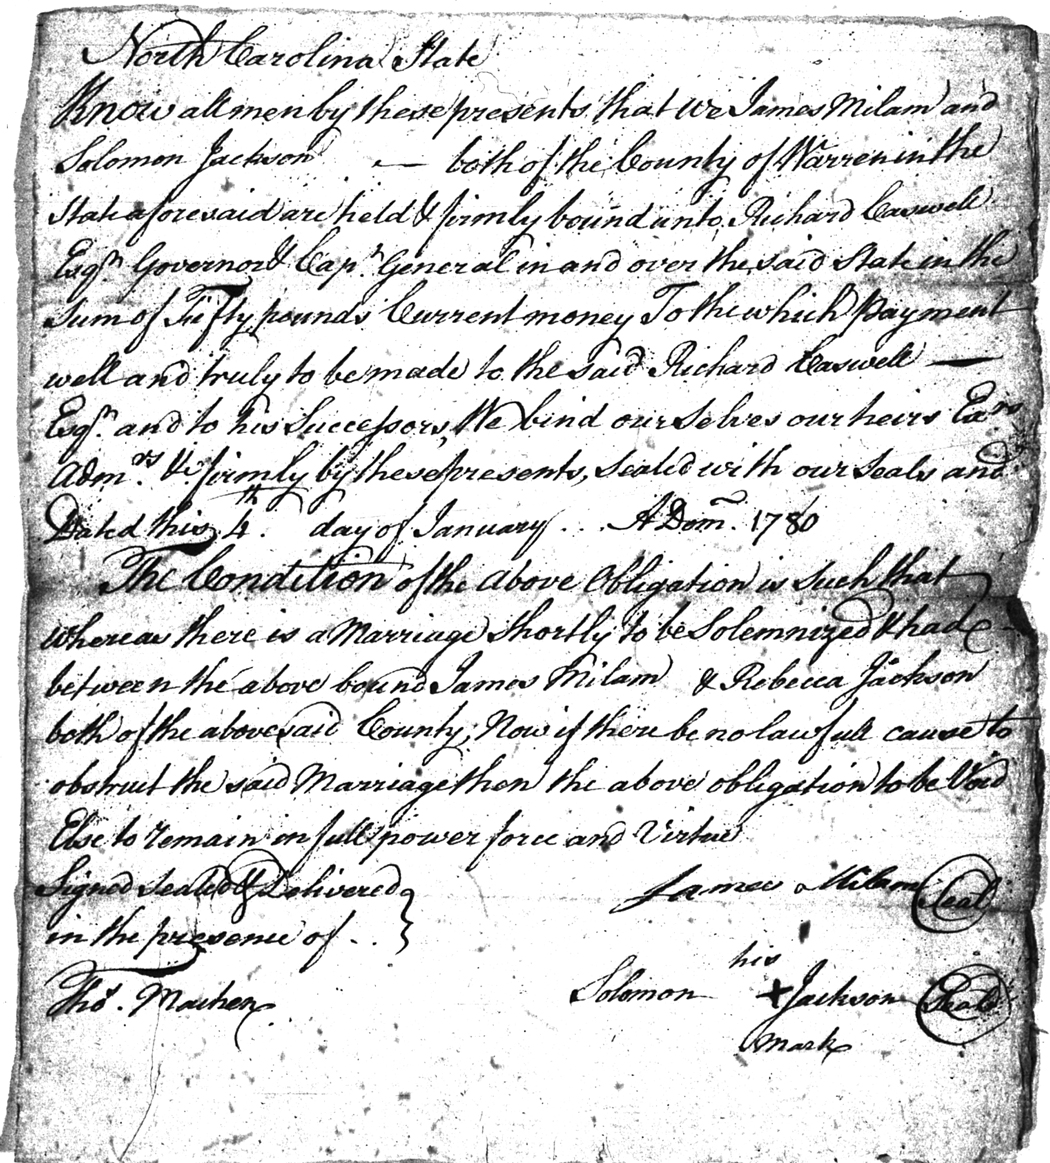 North Carolina State
Know all men by these presents that we James Milam and
Solomon Jackson — both of the County of Warren in the
State aforesaid are held & firmly bound unto Richard Caswell
Esqr. Governor & Capt. General in and over the said State in the
Sum of Fifty pounds Current money To the which Payment
well and truly to be made to the said Richard Caswell —
Esqr. and to his Successors, We bind our Selves our heirs Exrs
Admrs. &c firmly by these presents, Sealed with our Seals and
Dated this 4th. day of January . . . A Dom. 1780
The Condition of the above Obligation is Such that
whereas there is a Marriage Shortly to be Solemnized & had —
between the above bound James Milam & Rebecca Jackson
both of the abovesaid County; Now if there be no lawfull cause to
obstruct the said Marriage then the above obligation to be Void
Else to remain in full power force and Virtue
Signed Sealed & Delivered
in the presence of . .
James Milam Seal
his
Solomon + Jackson Seal
mark
Thos. Machen